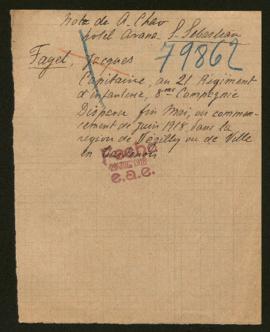 Note de A. Chev
hotel Arana S. Sebastian
79862
Fagel, Jacques
Capitaine, au 21 Régiment
d'infanterie, 8me Compagnie
Disparu fin Mai, ou commen-
cement de Juin 1918 dans la
région de Vézilly ou de Ville
en Tardenois
e.a.e.